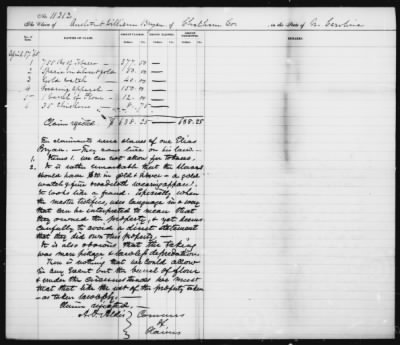 No 11212
The Claim of Anderson & William Bryan of Chatham Co. in the State of N. Carolina
NATURE OF CLAIM.
REMARKS.
1 755 lbs of Tobacco 377.50
2 Specie in silver & gold
3 Gold watch
4 Wearing apparel 150.00
5 1 barrel of Flour 12.00
6 35 Chickens 8.75
Claim rejected. $638.25 638.25
The claimants were slaves of one Elias
Bryan. They now live on his land.
1. Items 1. we can not allow for tobacco.
2. It is rather remarkable that the slaves
should have $ in gold & silver – a gold
watch & fine broadcloth wearing apparel.
It looks like a fraud. Especially when
the master testifies, uses language in a way
that can be interpreted to mean that
they owned the property, & yet seems
carefully to avoid a direct statement
that they did own this property.
It is also obvious that the taking
was mere pillage & lawless depredation.
There is nothing that we could allow
in any event but the barrel of flour
& under the circumstances we must
say that like the rest of the property taken
was taken lawlessly.
Claim rejected.
A. O. Aldis
Commrs
of
Claims